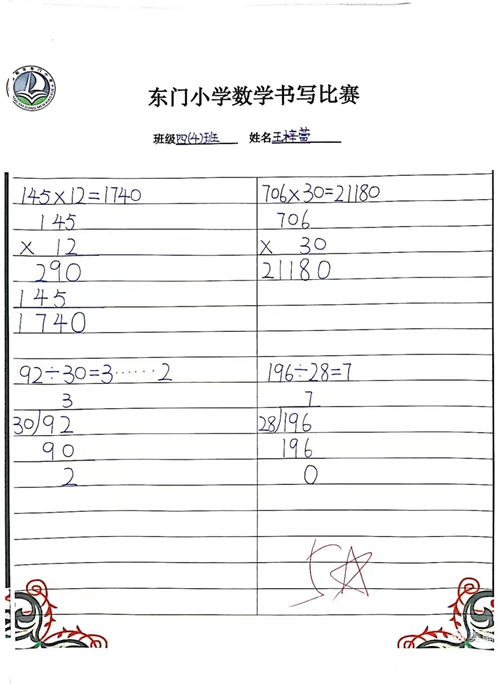 东门小学数学书写比赛
班级四(4)班 姓名王梓萱
145×12=1740
145
× 12
290
145
1740
706×30=21180
706
× 30
21180
92÷30=3……2
3
30)92
90
2
196÷28=7
7
28)196
196
0
5☆